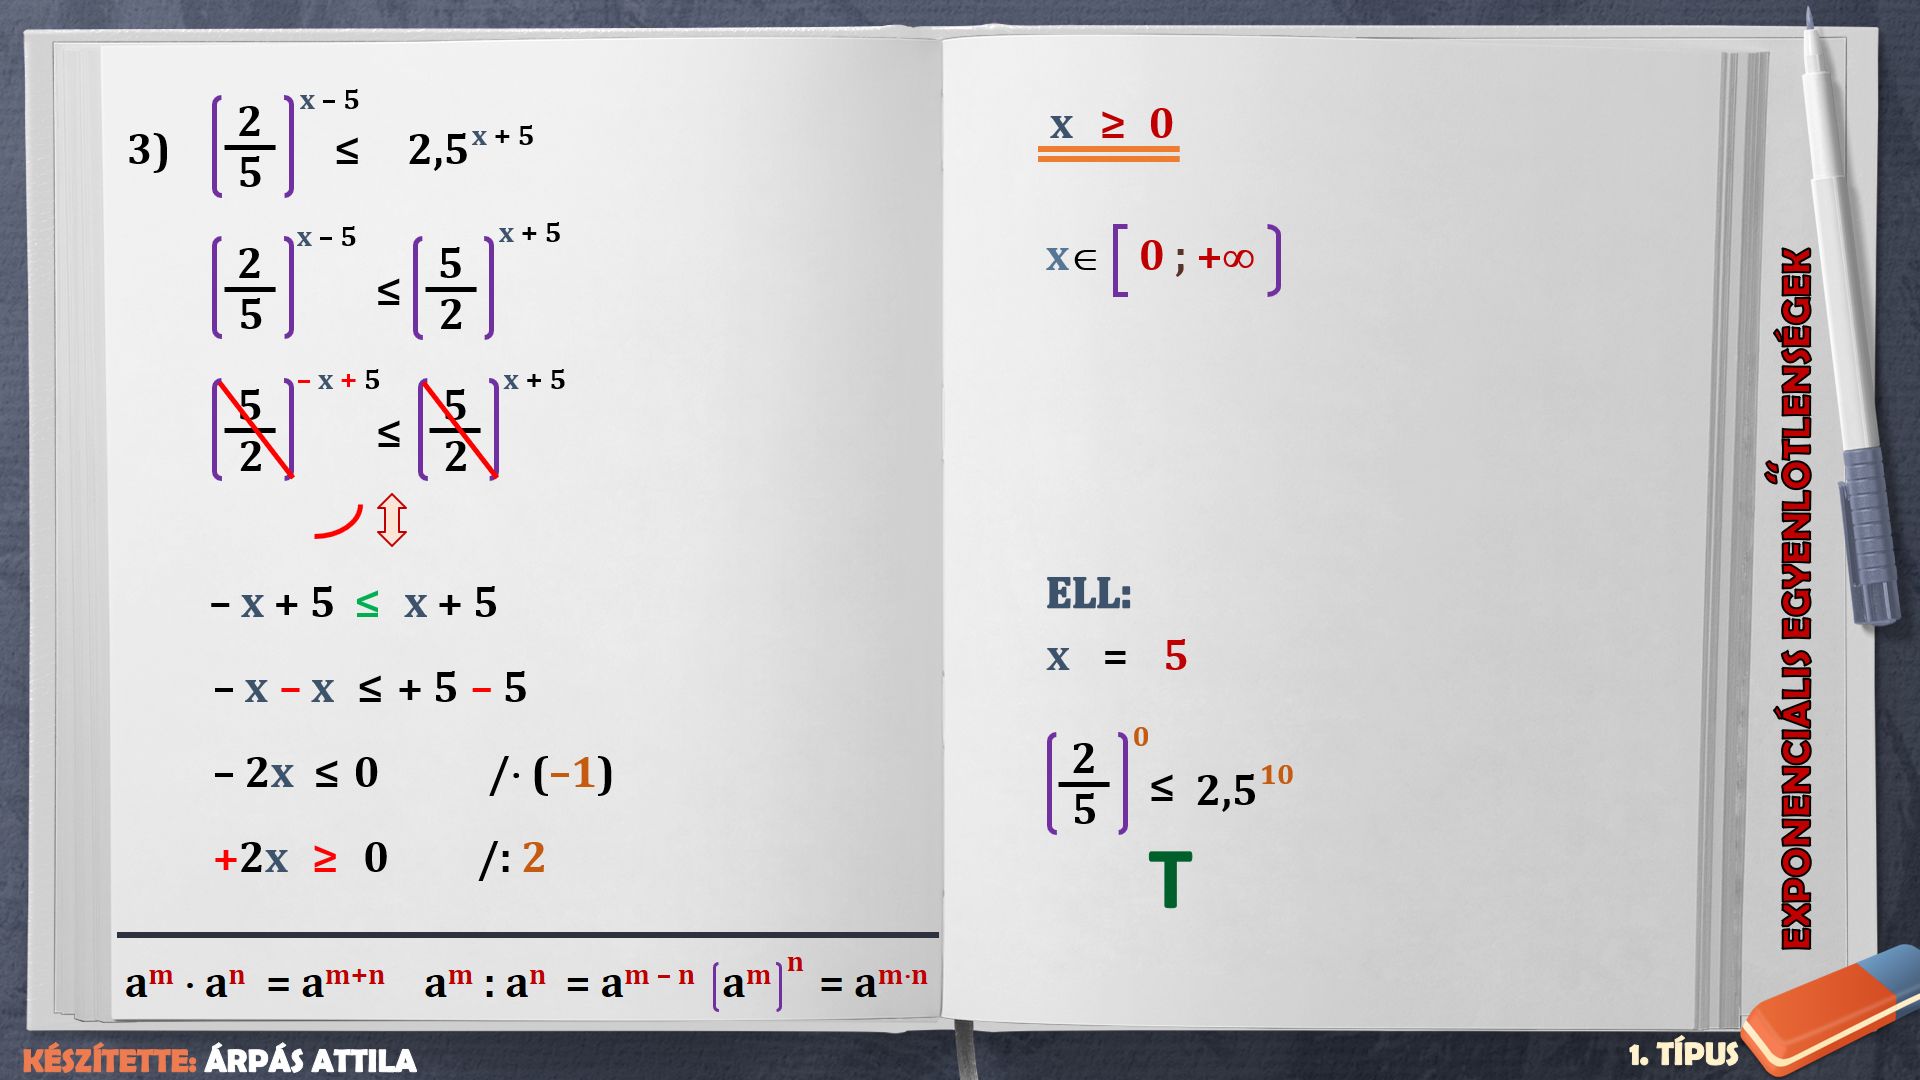 3) (2/5)^(x – 5) ≤ 2,5^(x + 5)
(2/5)^(x – 5) ≤ (5/2)^(x + 5)
(5/2)^(– x + 5) ≤ (5/2)^(x + 5)
– x + 5 ≤ x + 5
– x – x ≤ + 5 – 5
– 2x ≤ 0 /· (–1)
+2x ≥ 0 /: 2
a^m · a^n = a^(m+n) a^m : a^n = a^(m – n) (a^m)^n = a^(m·n)
x ≥ 0
x ∈ [ 0 ; +∞ )
ELL:
x = 5
(2/5)^0 ≤ 2,5^10
T
EXPONENCIÁLIS EGYENLŐTLENSÉGEK
KÉSZÍTETTE: ÁRPÁS ATTILA
1. TÍPUS